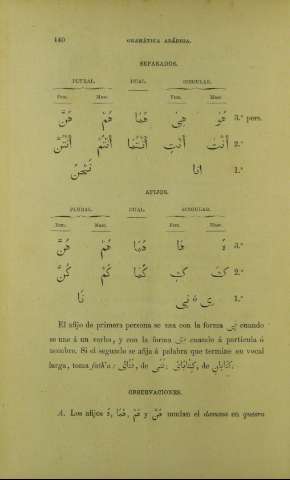 140 GRAMÁTICA ARÁBIGA.
SEPARADOS.
PLURAL. DUAL. SINGULAR.
Fem. Masc. Fem. Masc.
هُنَّ هُمْ هُمَا هِىَ هُوَ 3.ª pers.
أَنْتُنَّ أَنْتُمْ أَنْتُمَا أَنْتِ أَنْتَ 2.ª
نَحْنُ انا 1.ª
AFIJOS.
PLURAL. DUAL. SINGULAR.
Fem. Masc. Fem. Masc.
هُنَّ هُمْ هُمَا هَا هُ 3.ª
كُنَّ كُمْ كُمَا كِ كَ 2.ª
نَا ـِى ó نِى 1.ª
El afijo de primera persona se usa con la forma نِى cuando
se une á un verbo, y con la forma ـِى cuando á partícula ó
nombre. Si el segundo se afija á palabra que termine en vocal
larga, toma fath'a: de de كِتَابَانِ.
OBSERVACIONES.
A. Los afijos هُ, هُمَا, هُمْ y هُنَّ mudan el damma en quesra